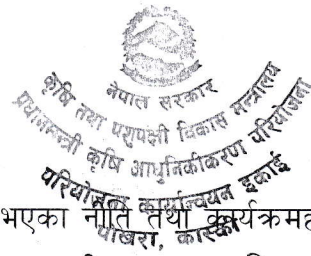 नेपाल सरकार
कृषि तथा पशुपन्छी विकास मन्त्रालय
प्रधानमन्त्री कृषि आधुनिकीकरण परियोजना
परियोजना कार्यान्वयन इकाई
पोखरा, कास्की
भएका नीति तथा कार्यक्रमह